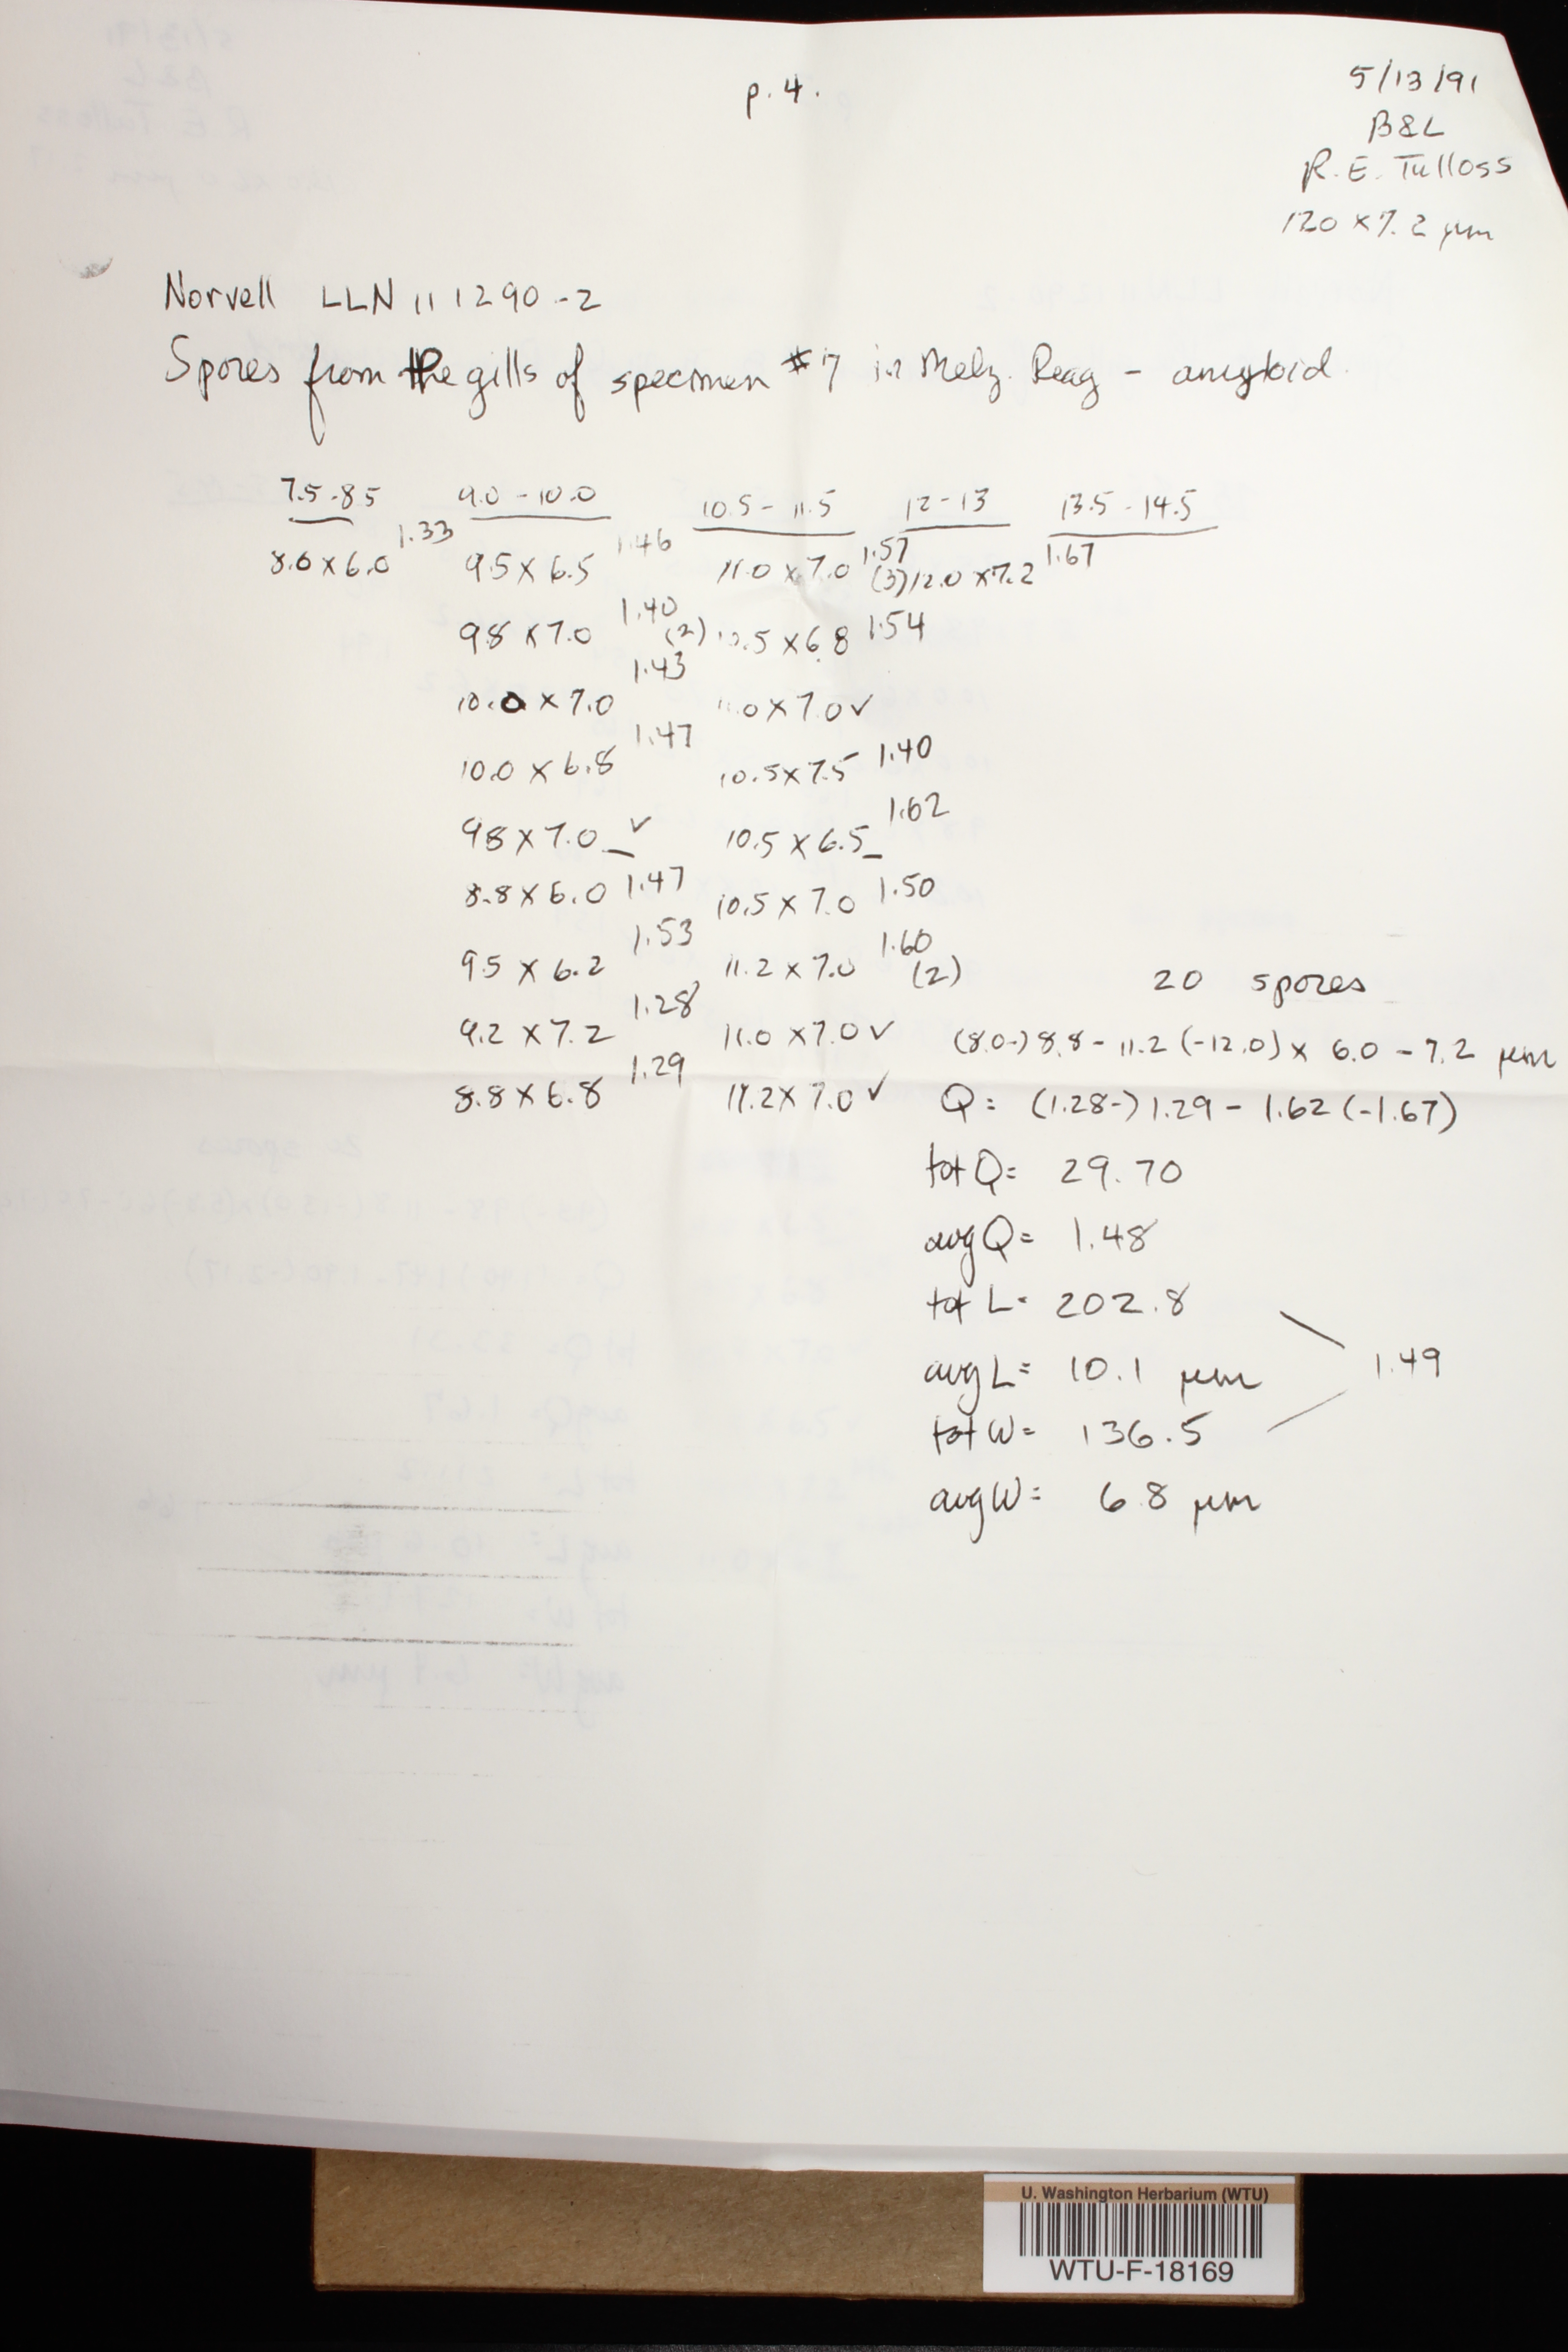 p. 4.
5/13/91
B&L
R. E. Tulloss
120 x 7.2 µm
Norvell LLN 111290-2
Spores from the gills of specimen #7 in Melz. Reag - amyloid.
7.5-8.5 9.0-10.0 10.5-11.5 12-13 13.5-14.5
8.0 x 6.0 1.33 9.5 x 6.5 1.46 11.0 x 7.0 1.57 (3) 12.0 x 7.2 1.67
9.8 x 7.0 1.40 (2) 10.5 x 6.8 1.54
10.0 x 7.0 1.43 11.0 x 7.0 ✓
10.0 x 6.8 1.47 10.5 x 7.5 1.40
9.8 x 7.0 ✓ 10.5 x 6.5 1.62
8.8 x 6.0 1.47 10.5 x 7.0 1.50
9.5 x 6.2 1.53 11.2 x 7.0 1.60 (2)
9.2 x 7.2 1.28 11.0 x 7.0 ✓
8.8 x 6.8 1.29 11.2 x 7.0 ✓
20 spores
(8.0-) 8.8 - 11.2 (-12.0) x 6.0 - 7.2 µm
Q = (1.28-) 1.29 - 1.62 (-1.67)
tot Q = 29.70
avg Q = 1.48
tot L = 202.8
avg L = 10.1 µm
1.49
tot W = 136.5
avg W = 6.8 µm
U. Washington Herbarium (WTU)
WTU-F-18169